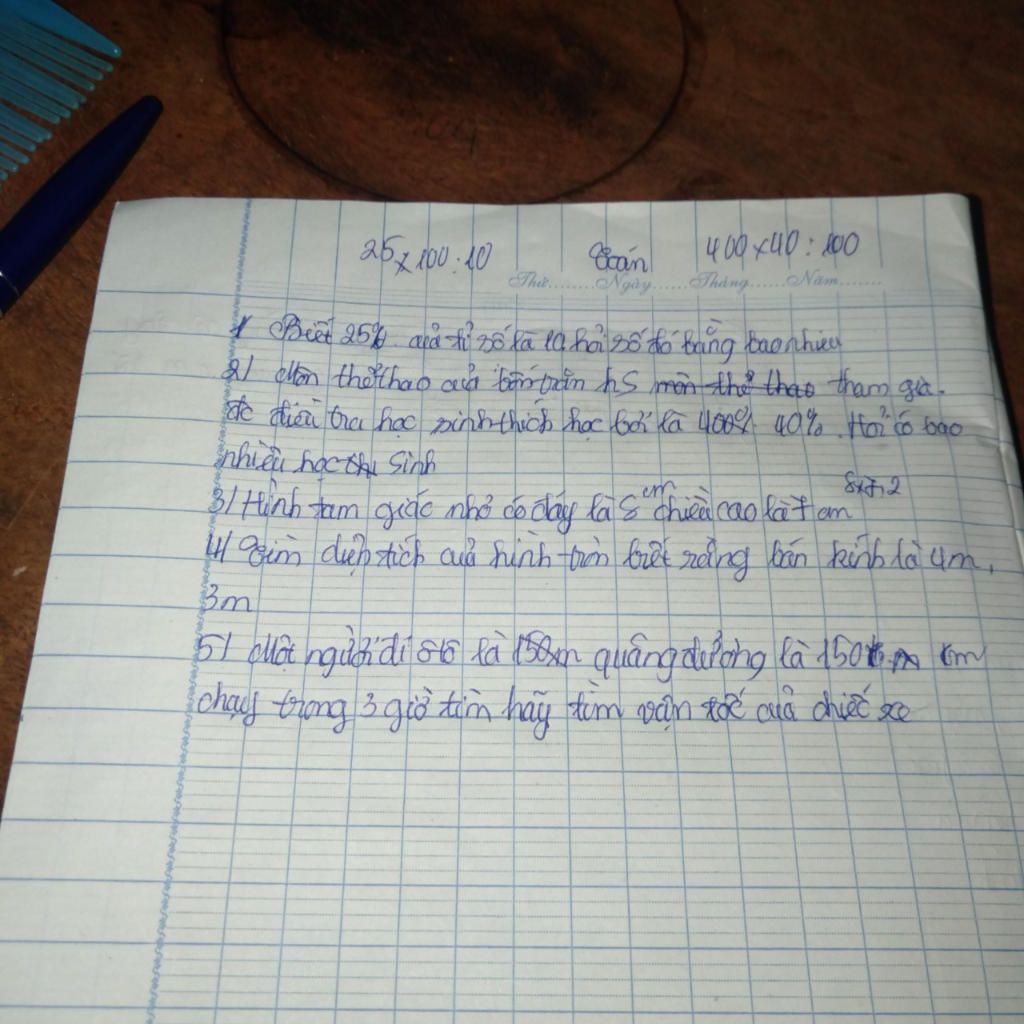 25 x 100 : 10 Toán 400 x 40 : 100
Thứ.........Ngày.........Tháng.........Năm.........
1 Biết 25% của tỉ số là 10 hỏi số đó bằng bao nhiêu
2) Môn thể thao của hs môn thể thao tham gia.
đc điều tra học sinh thích học bơi là 400% 40%. Hỏi có bao
nhiêu học sinh
3) Hình tam giác nhỏ có đáy là 8 cm chiều cao là 7 cm 8x7:2
4) Tìm diện tích của hình tròn biết rằng bán kính là 4m,
3m
5) Một người đi ôtô là 150m quãng đường là 150 km
chạy trong 3 giờ tìm hãy tìm vận tốc của chiếc xe